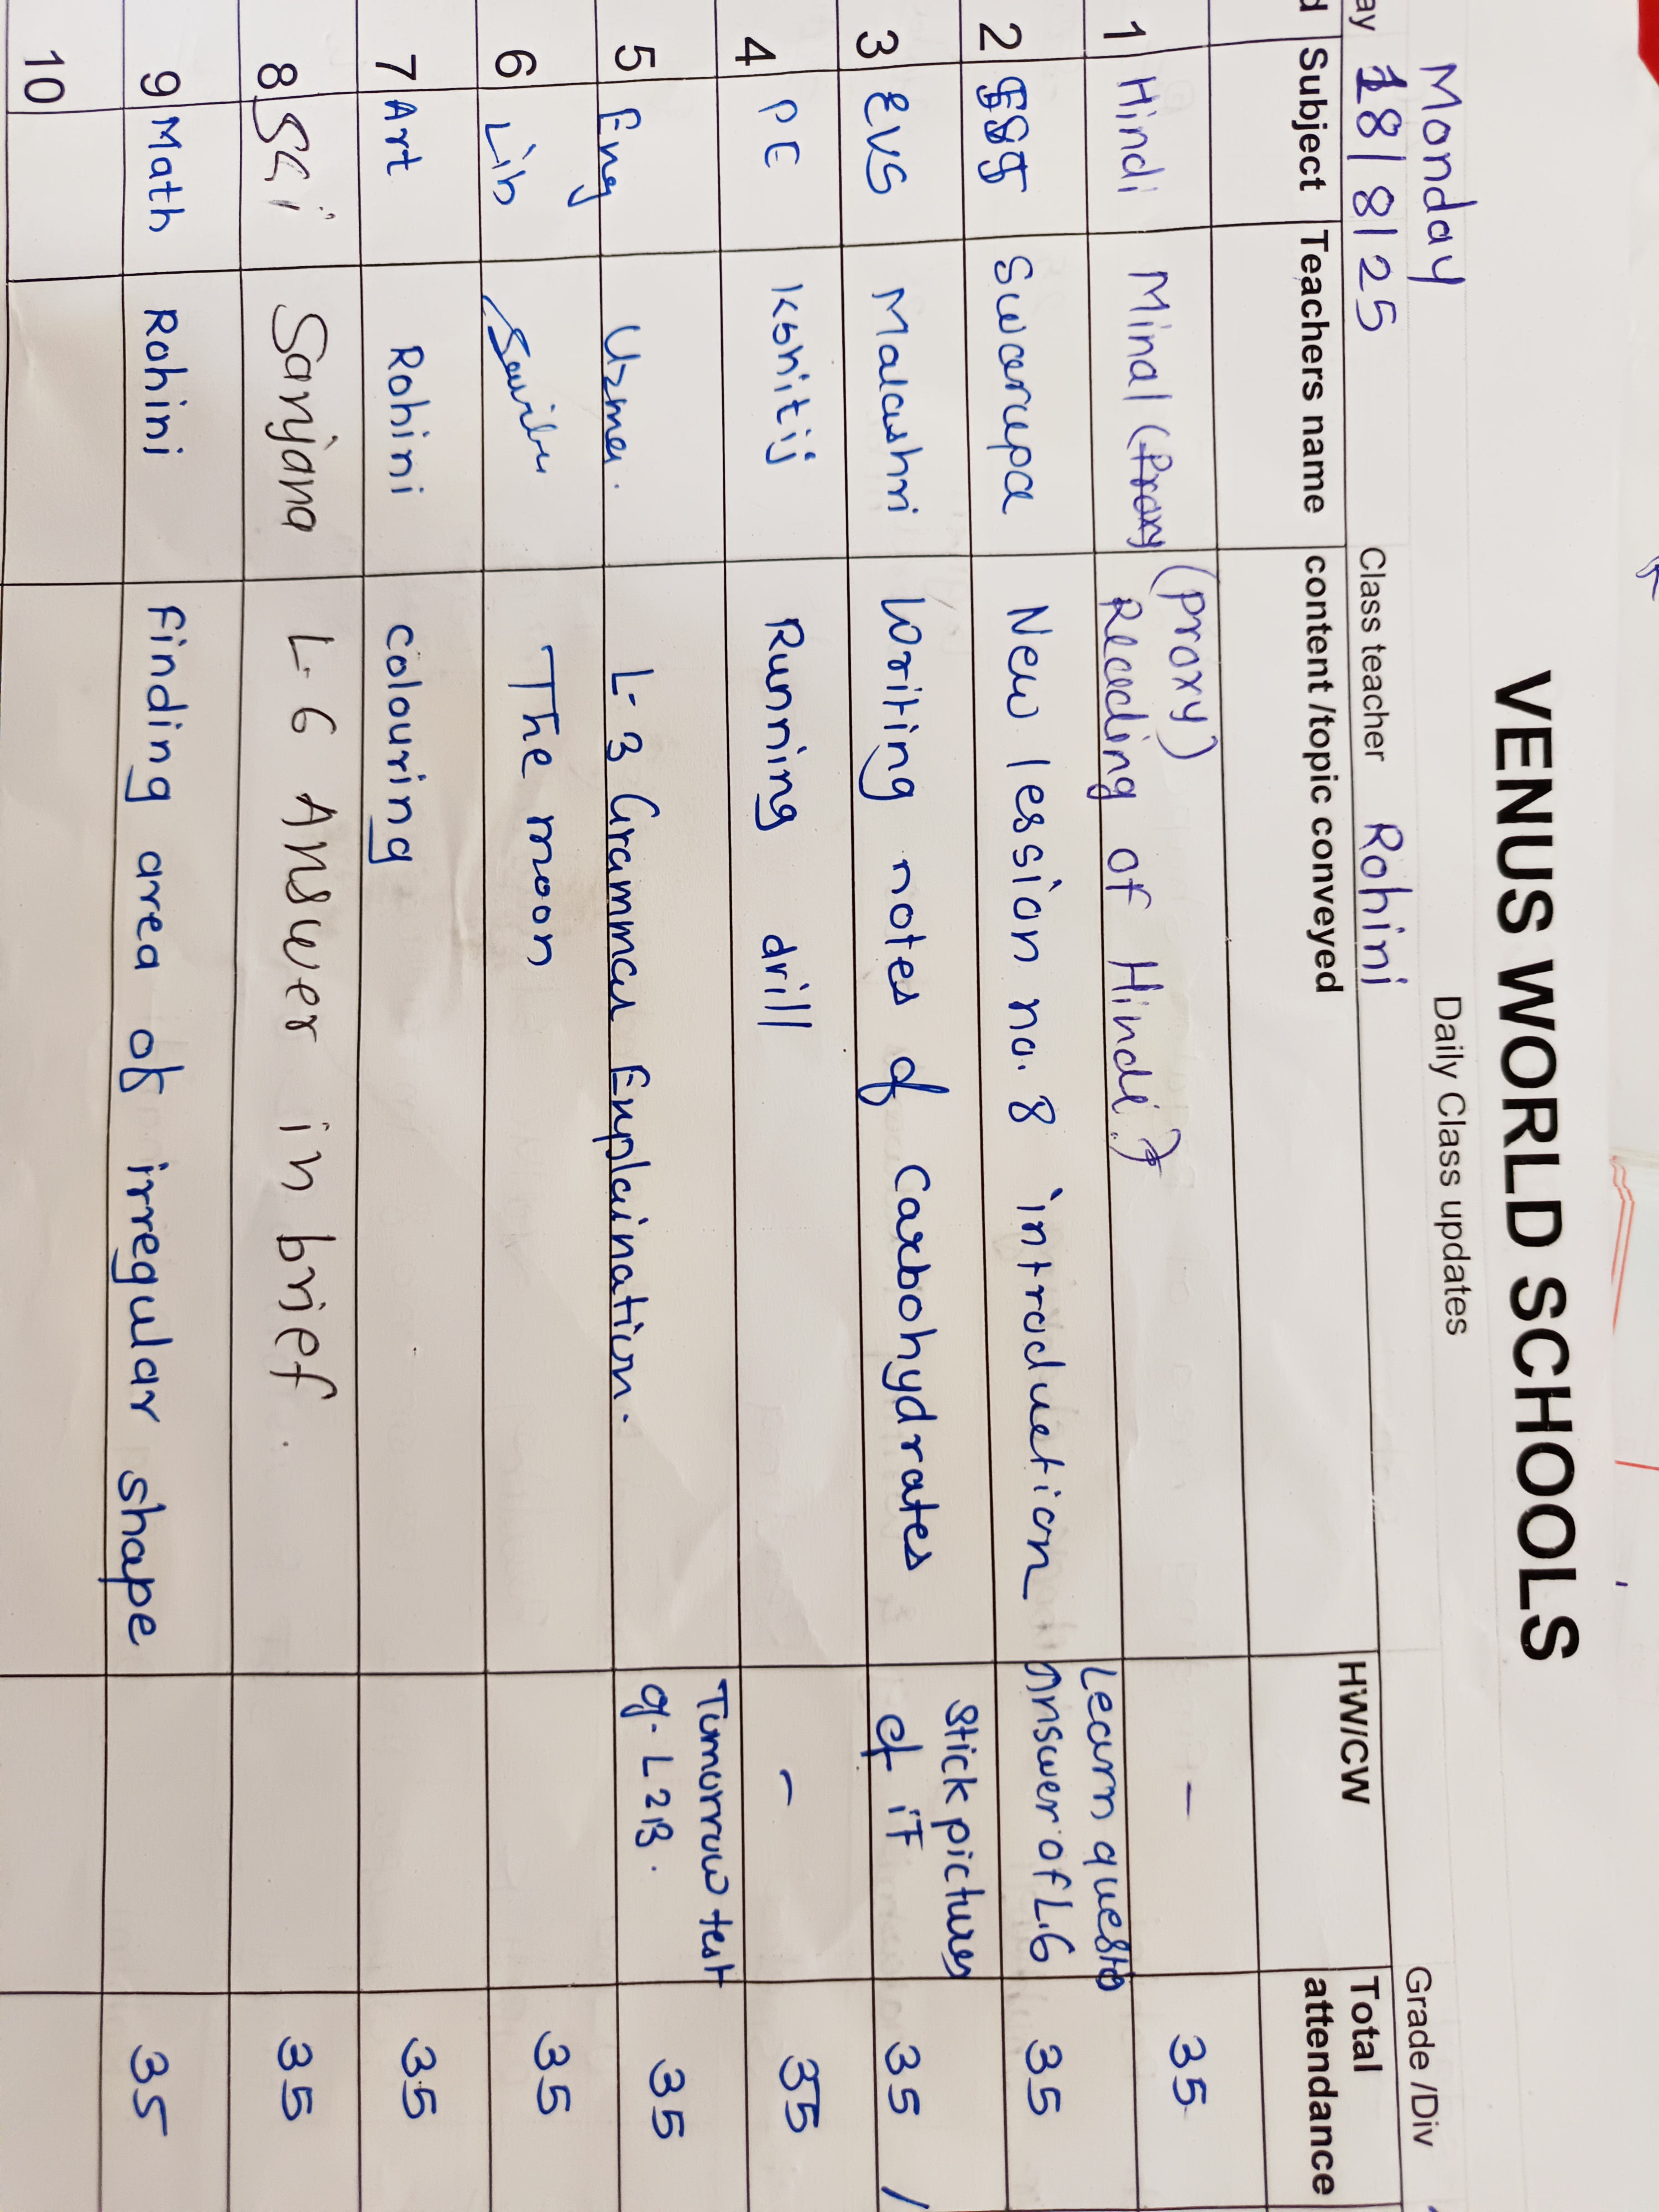 VENUS WORLD SCHOOLS
Daily Class updates
Monday
ay 18/8/25 Class teacher Rohini Grade /Div
d Subject Teachers name content /topic conveyed HW/CW Total attendance
1 Hindi Minal (Proxy (Proxy) Reading of Hindi.) - 35
2 Swarupa New lession no. 8 introduction Learn questo Answer of L.6 35
3 EVS Malashri Writing notes of Carbohydrates Stick pictures of it 35 /
4 PE Kshitij Running drill - 35
5 Eng Uzma. L-3 Grammar Explaination. Tomorrow test of L2B. 35
6 Lib The moon 35
7 Art Rohini colouring 35
8 Sci Sanjana L-6 Answer in brief. 35
9 Math Rohini Finding area of irregular shape 35
10